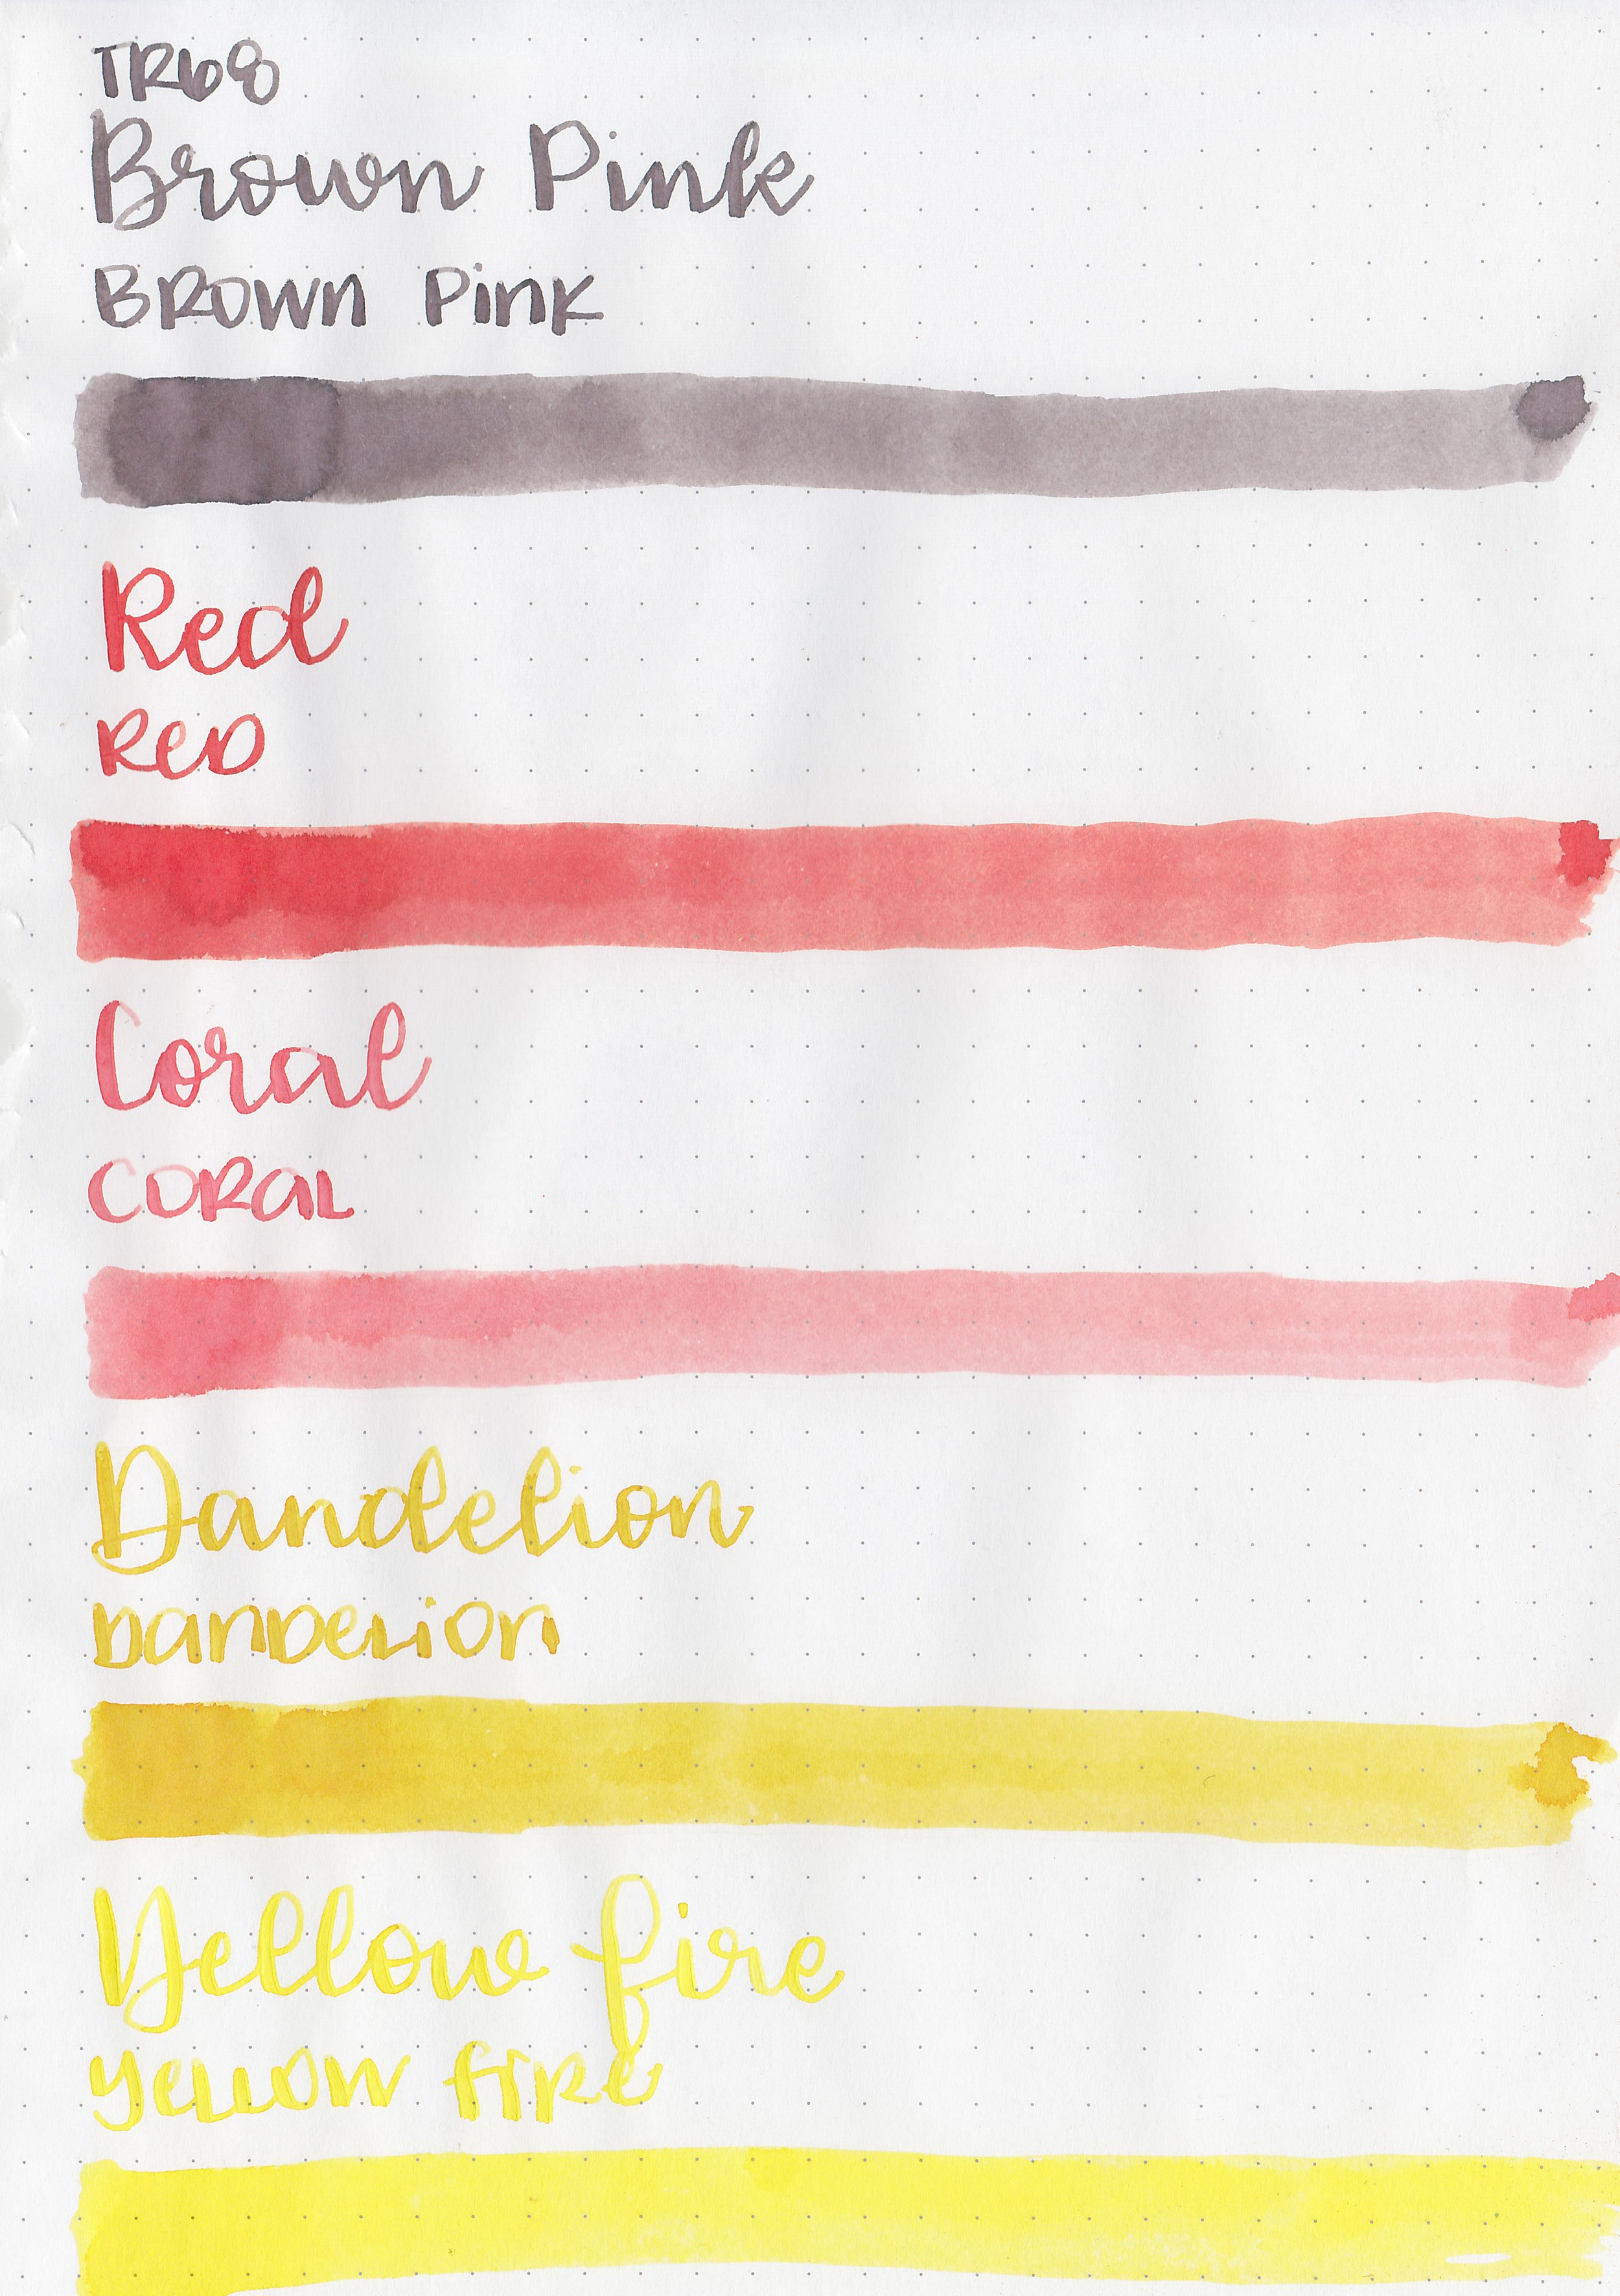 TR68
Brown Pink
BROWN PinK
Red
ReD
Coral
CORaL
Dandelion
DanDeLiOn
Yellow fire
YeLLOW fiRe